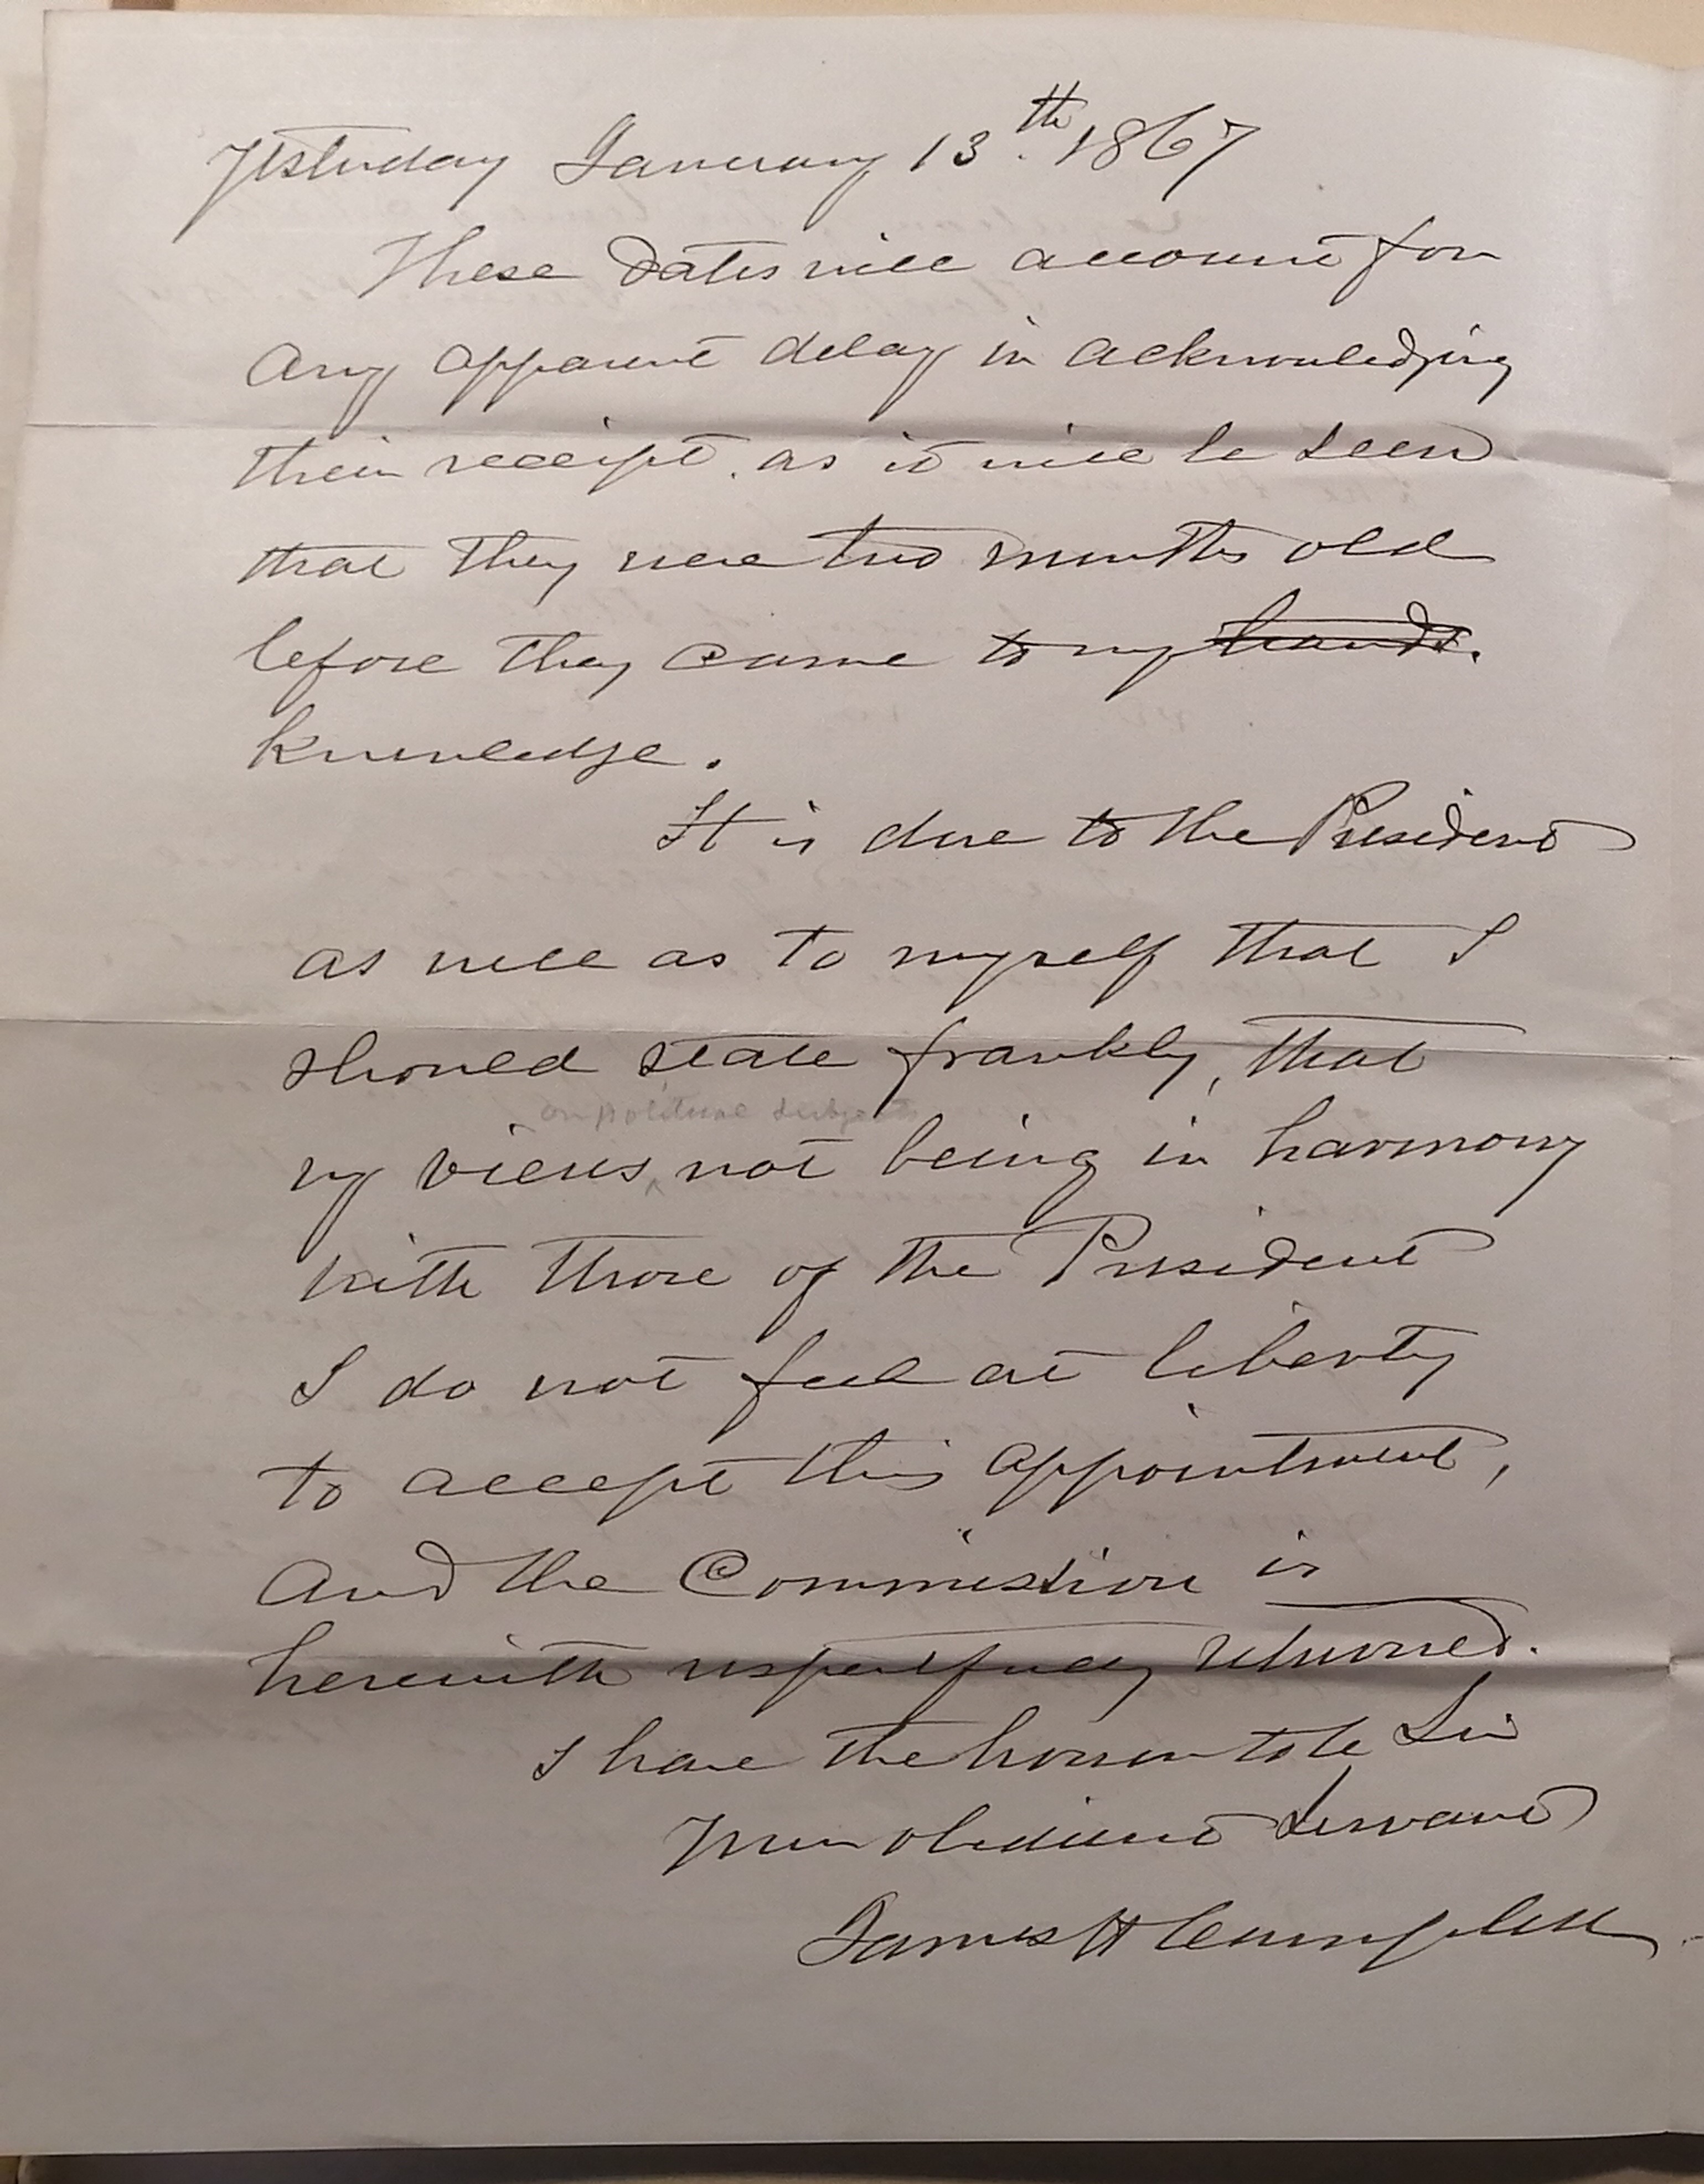 Yesterday January 13th. 1867
These Dates will account for
any apparent delay in acknowledging
their receipt. as it will be seen
that they were two months old
before they came to my hands.
knowledge.
It is due to the President
as well as to myself that I
should state frankly, that
on political subjects
my views not being in harmony
with those of the President
I do not feel at liberty
to accept this appointment,
and the Commission is
herewith respectfully returned.
I have the honor to be Sir
Your obedient Servant
James H Campbell